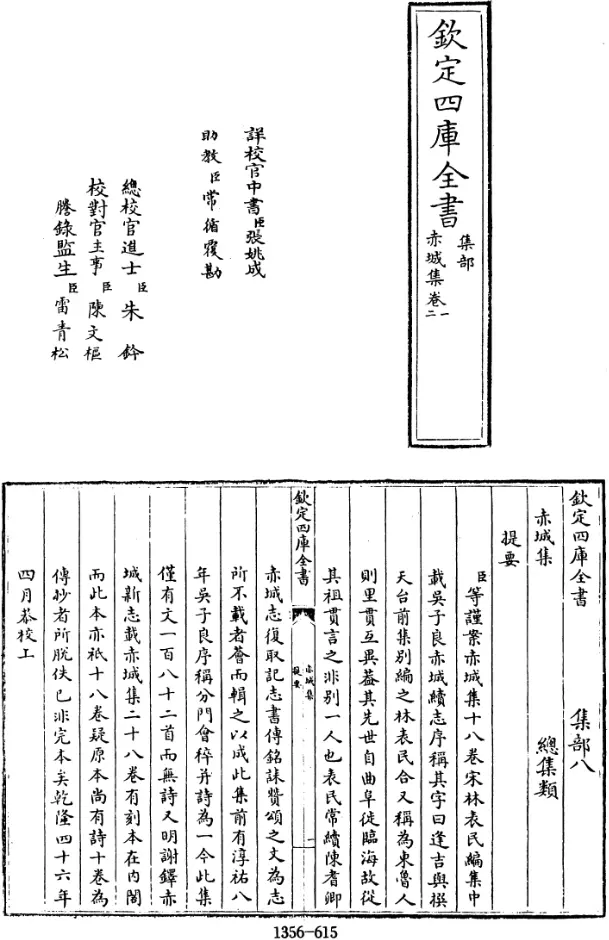 欽定四庫全書
集部
赤城集卷一
二
詳校官中書臣張姚成
助教臣常循覆勘
總校官進士臣朱鈐
校對官主事臣陳文樞
謄錄監生臣雷青松
欽定四庫全書 集部八
赤城集 總集類
提要
臣等謹案赤城集十八卷宋林表民編集中
載吳子良赤城續志序稱其字曰逢吉與撰
天台前集別編之林表民合又稱為東魯人
則里貫互異葢其先世自曲阜徙臨海故從
其祖貫言之非別一人也表民常續陳耆卿
欽定四庫全書
赤城集
提要
一
赤城志復取記志書傳銘誄贊頌之文為志
所不載者薈而輯之以成此集前有淳祐八
年吳子良序稱分門會稡并詩為一今此集
僅有文一百八十二首而無詩又明謝鐸赤
城新志載赤城集二十八卷有刻本在内閣
而此本亦祇十八卷疑原本尚有詩十卷為
傳抄者所脫佚已非完本矣乾隆四十六年
四月恭校上
1356-615